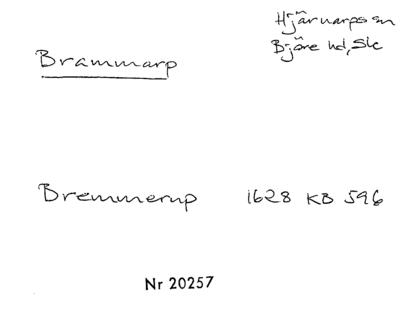 Hjärnarps sn
Bjäre hd, Sk
Brammarp
Bremmerup 1628 KB 596
Nr 20257